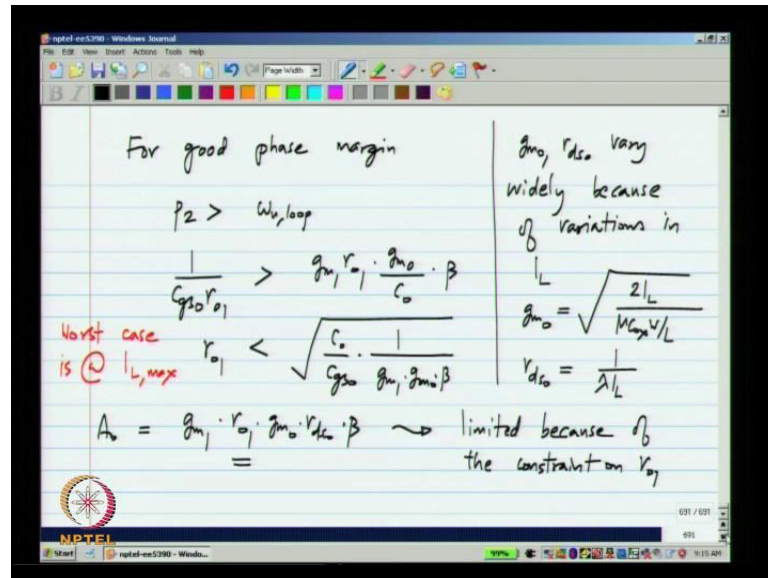 nptel-ee5390 - Windows Journal
File Edit View Insert Actions Tools Help
Page Width
B I
For good phase margin
p₂ > ωu,loop
1 / (Cgs₀ r₀₁) > gm₁ r₀₁ · gm₀ / C₀ · β
Worst case
is @ IL,max
r₀₁ < √(C₀ / Cgs₀ · 1 / (gm₁ · gm₀ · β))
A₀ = gm₁ · r₀₁ · gm₀ · rds₀ · β ⇝ limited because of
the constraint on r₀₁
gm₀, rds₀ vary
widely because
of variations in
IL
gm₀ = √(2IL / (μCox W/L))
rds₀ = 1 / (λIL)
691 / 691
691
NPTEL
Start
nptel-ee5390 - Windo...
99%
9:15 AM